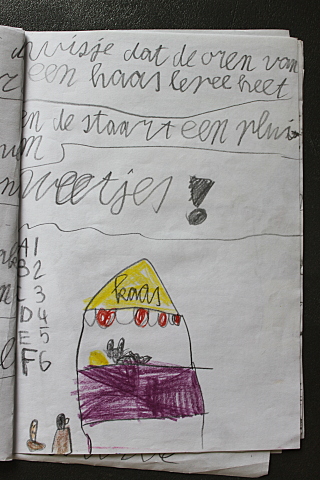 wisje dat de oren van
een haas lepel heet
en de staart een plui
weetjes!
A1
B2
C3
D4
E5
F6
kaas